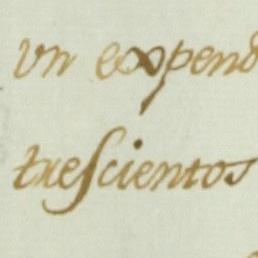 vn expend
trescientos